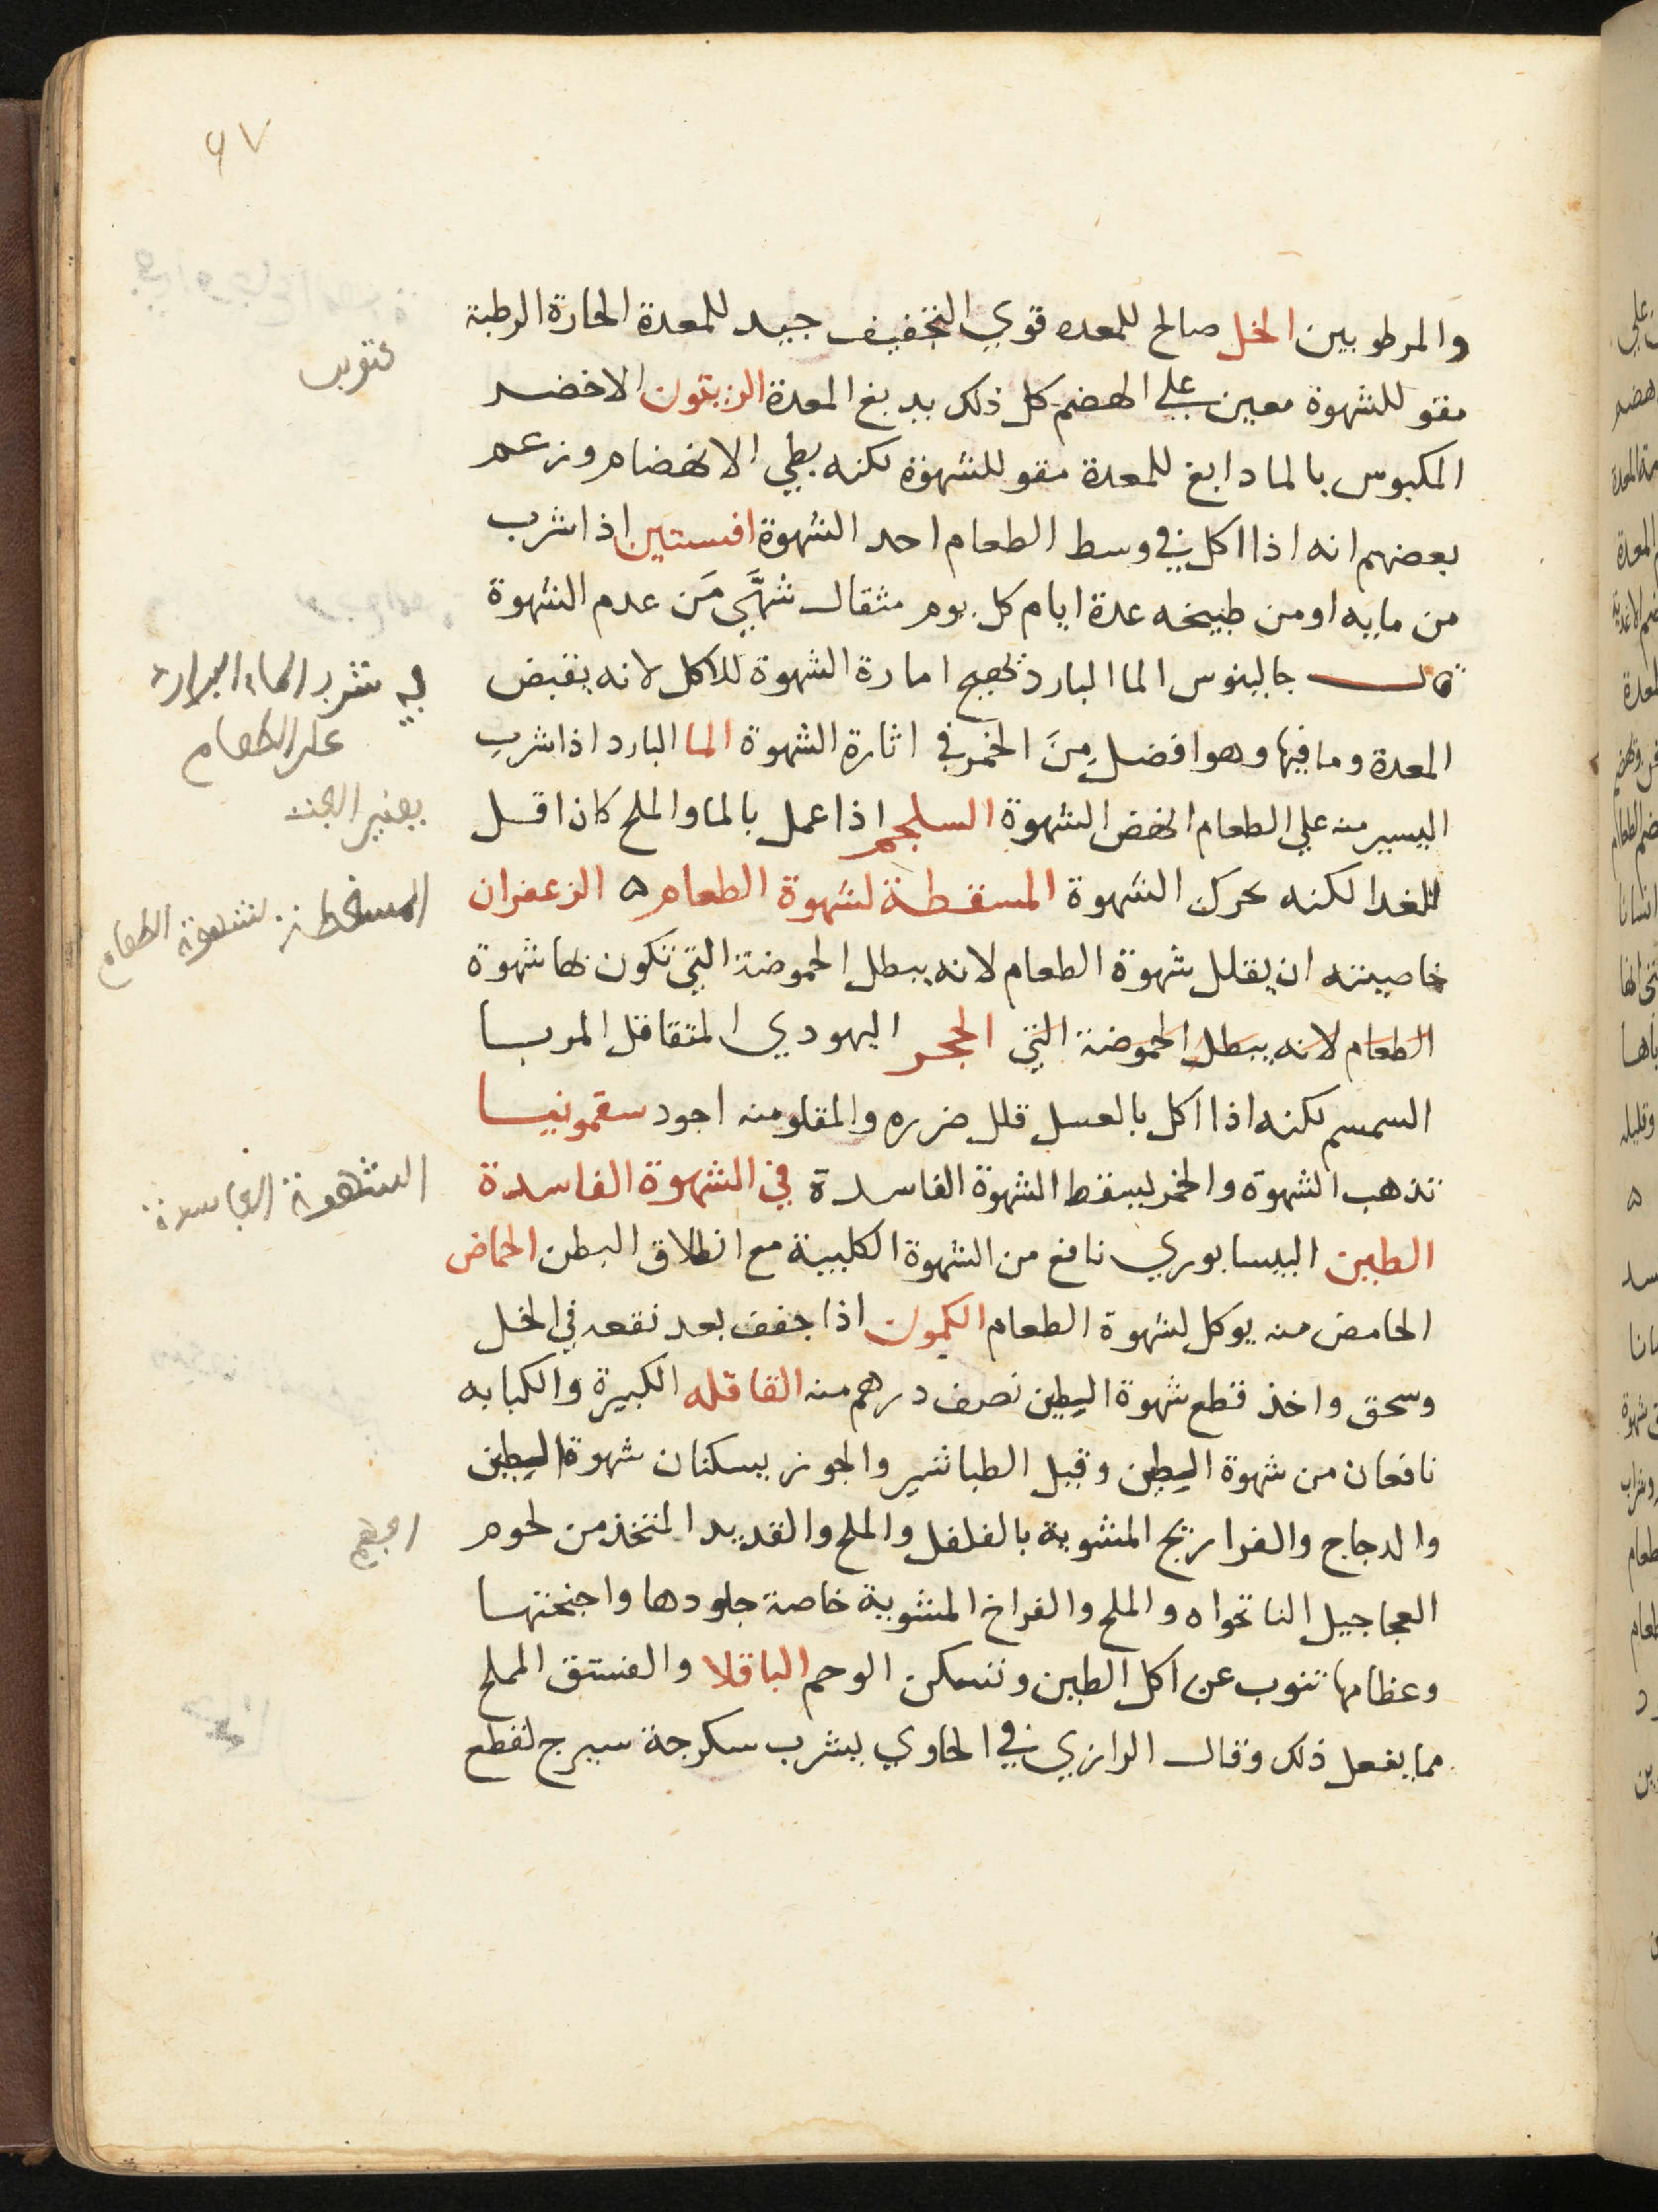 ٩٧
والمرطوبين الخل صالح للمعده قوي التخفيف جيد للمعدة الحارة الرطبة
مقو للشهوة معين علي الهضم كل ذلك يدبغ المعدة الزيتون الاخضر
المكبوس بالما دابغ للمعدة مقو للشهوة لكنه بطي الانهضام وزعم
بعضهم انه اذا اكل في وسط الطعام احد الشهوة افسنتين اذا شرب
من مايه او من طبيخه عدة ايام كل يوم مثقال شهَّي مَن عدم الشهوة
قال جالينوس الما البارد نجح امارة الشهوة للاكل لانه يقبض
في شرب الماء البارد
على الطعام
المعدة وما فيها وهو افضل مِنَ الخمر في اثارة الشهوة الما البارد اذا شرب
اليسير منه علي الطعام انهض الشهوة السلجم اذا عمل بالما والملح كان اقل
للغدا لكنه يحرك الشهوة المسقطة لشهوة الطعام ه الزعفران
المسقطة لشهوة الطعام
خاصيته ان يقلل شهوة الطعام لانه يبطل الحموضة التي تكون بها شهوة
الطعام لانه يبطل الحموضة التي الحجر اليهودي المتقاقل المربا
السمسم لكنه اذا اكل بالعسل قلل ضرره والمقلو منه اجود سقمونيا
تذهب الشهوة والخمر يسقط الشهوة الفاسدة في الشهوة الفاسدة
الشهوة الفاسدة
الطين البيسابوري نافع من الشهوة الكلبية مع انطلاق البطن الحماض
الحامض منه يوكل لشهوة الطعام الكمون اذا جفف بعد نقعه في الخل
وسحق واخذ قطع شهوة الطين نصف درهم منه القاقله الكبيرة والكبابه
نافعان من شهوة الطين وقيل الطباشير والجوز يسكنان شهوة الطين
والدجاج والفراريج المشوية بالفلفل والملح والقديد المتخذ من لحوم
العجاجيل النانخواه والملح والفراخ المشوية خاصة جلودها واجنحتها
وعظامها تنوب عن اكل الطين وتسكن الوحم الباقلا والفستق المملح
مما يفعل ذلك وقال الرازي في الحاوي يشرب سكرجة سيرج لقطع